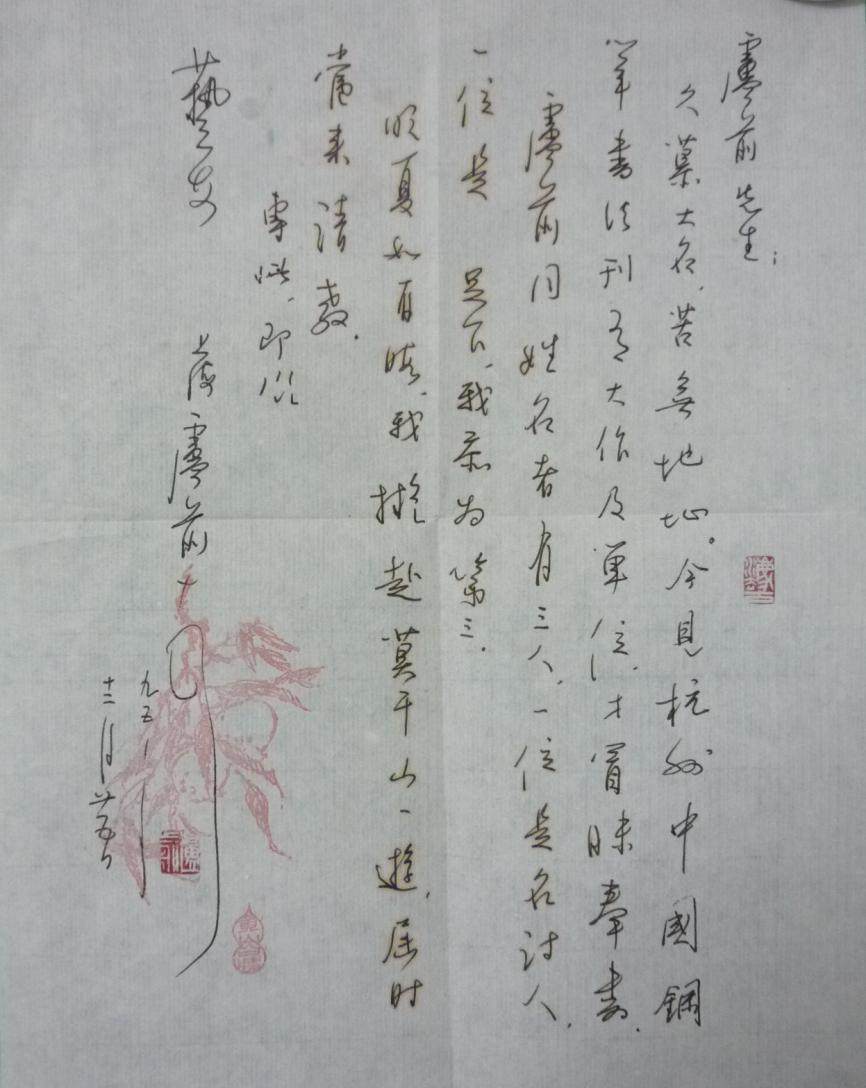 盧前先生：
久慕大名，苦無地址。今見杭州中國鋼
筆書法刊有大作及單位，才冒昧奉書。
盧前同姓名者有三人，一位是名詩人，
一位是 足下，我忝为第三。
明夏如有暇，我擬赴莫干山一遊，屆时
當来請教。
專此，即頌
藝安
上海盧前
九五
十二月廿五日